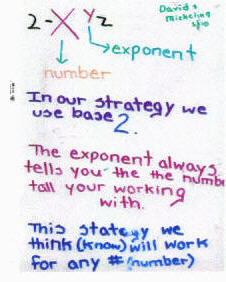 David &
2-X Yz
exponent
number
In our strategy we
use base 2.
The exponent always
tells you the the numbe
tall your working
with.
This stategy we
think (know) will work
for any # (number)